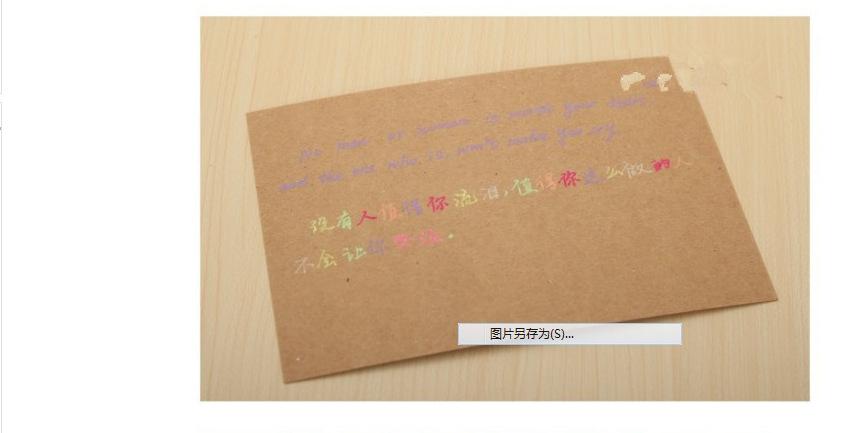 No man or woman is worth your tears,
and the one who is, won't make you cry.
没有人值得你流泪,值得你这么做的人
不会让你哭泣。
图片另存为(S)...